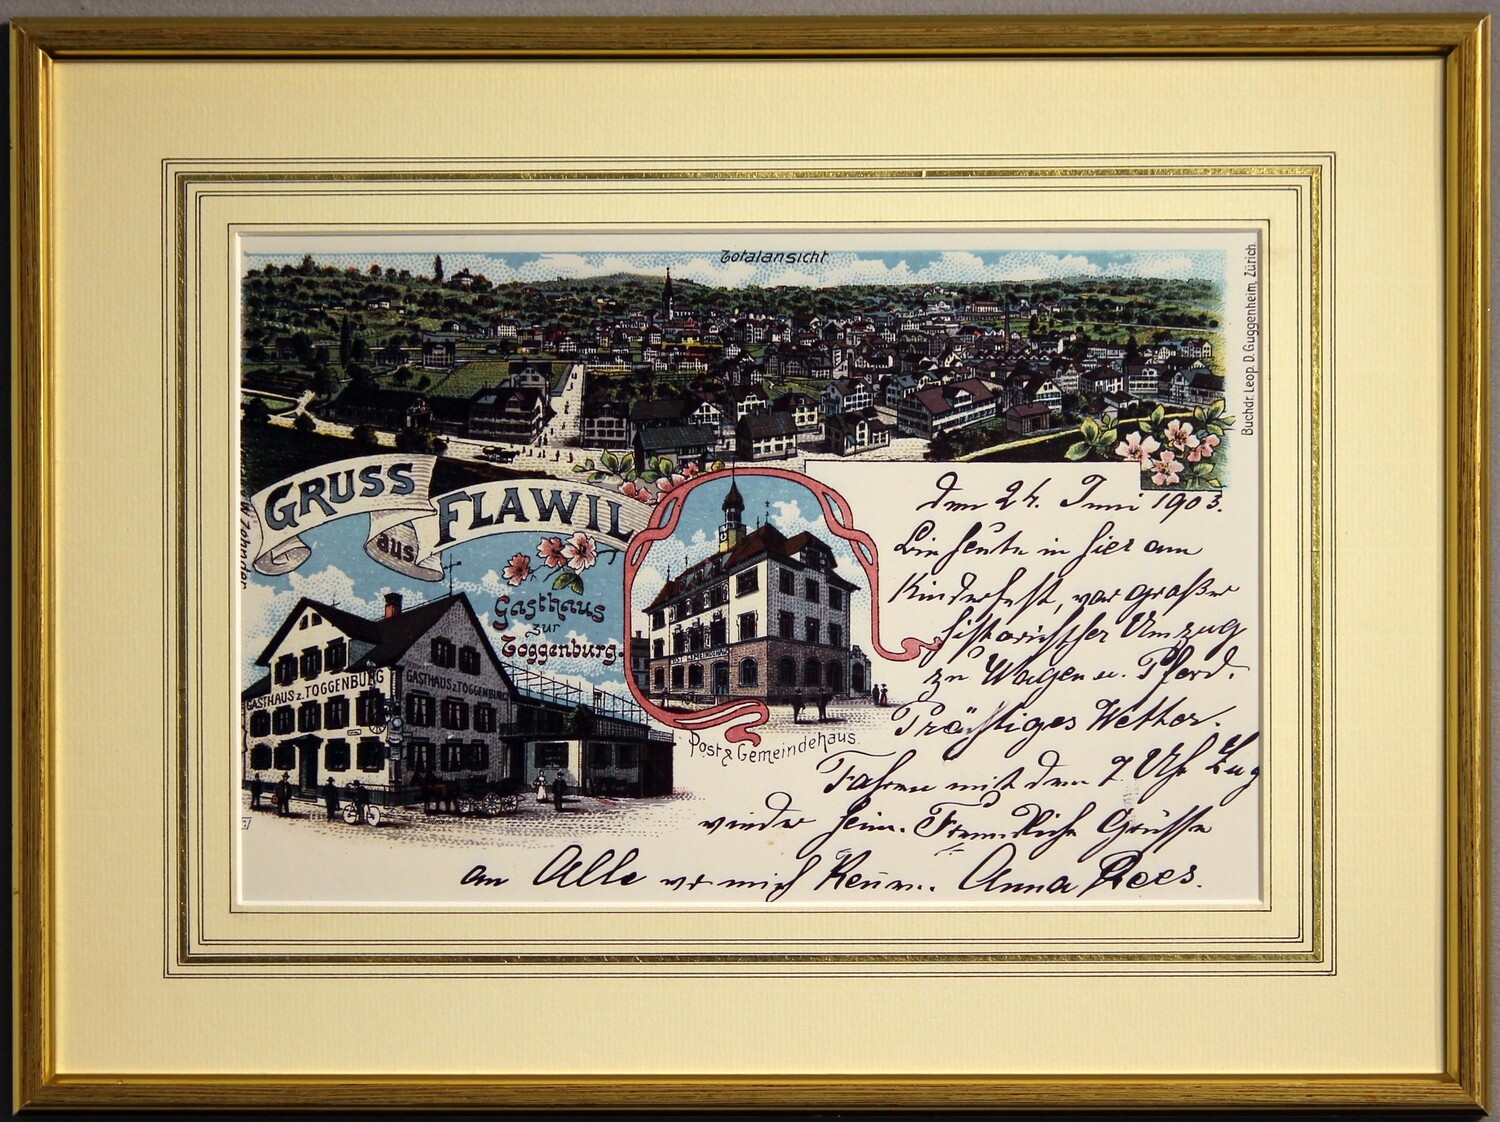 Totalansicht
Buchdr. Leop. D. Guggenheim, Zürich.
GRUSS
aus
FLAWIL
Gasthaus
zur
Toggenburg.
GASTHAUS z. TOGGENBURG
GASTHAUS z. TOGGENBURG
POST GEMEINDEHAUS
Post & Gemeindehaus.
den 24. Juni 1903.
Bin heute in hier am
Kinderfest, war großer
historischer Umzug
zu Wagen u. Pferd.
Prächtiges Wetter.
Fahren mit dem 7 Uhr Zug
wieder heim. Freundliche Grüsse
an Alle wo mich kennen. Anna Rees.